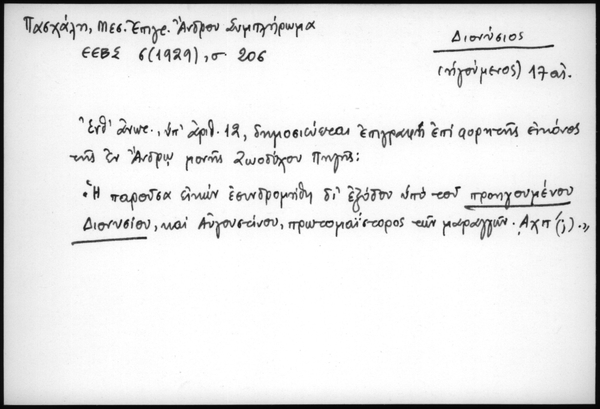 Πασχάλη, Μεσ. Ἐπιγρ. Ἄνδρου Συμπλήρωμα
ΕΕΒΣ 6(1929), σ 206
Διονύσιος
(ἡγούμενος) 17 αἰ.
Ἔνθ' ἄνωτ., ὑπ' ἀριθ. 12, δημοσιεύεται ἐπιγραφὴ ἐπὶ φορητῆς εἰκόνος
τῆς ἐν Ἄνδρῳ μονῆς Ζωοδόχου Πηγῆς:
"Ἡ παροῦσα εἰκὼν ἐσυνδρομήθη δι' ἐξόδου ὑπὸ τοῦ προηγουμένου
Διονυσίου, καὶ Αὐγουστίνου, πρωτομαΐστορος τῶν μαραγγῶν. Αχπ (;)."